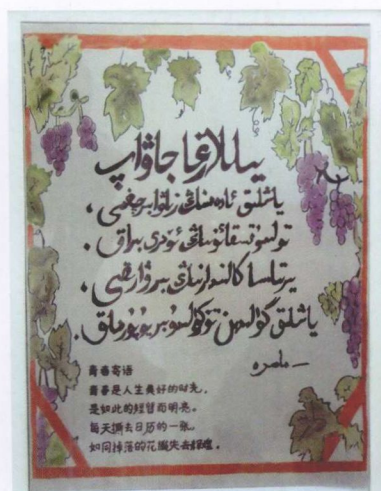 يىللارغا جاۋاپ
ياشلىق ئادەمنىڭ زىلۋا بىر چېغى،
تولىمۇ قىسقا ئۇنىڭ ئۆمرى بىراق.
يىرتىلسا كالىندارنىڭ بىر ۋارىقى،
ياشلىق گۈلىدىن تۆكۈلىدۇ بىر يوپۇرماق.
青春寄语
青春是人生美好的时光,
是如此的短暂而明亮。
每天撕去日历的一张,
如同掉落的花瓣失去